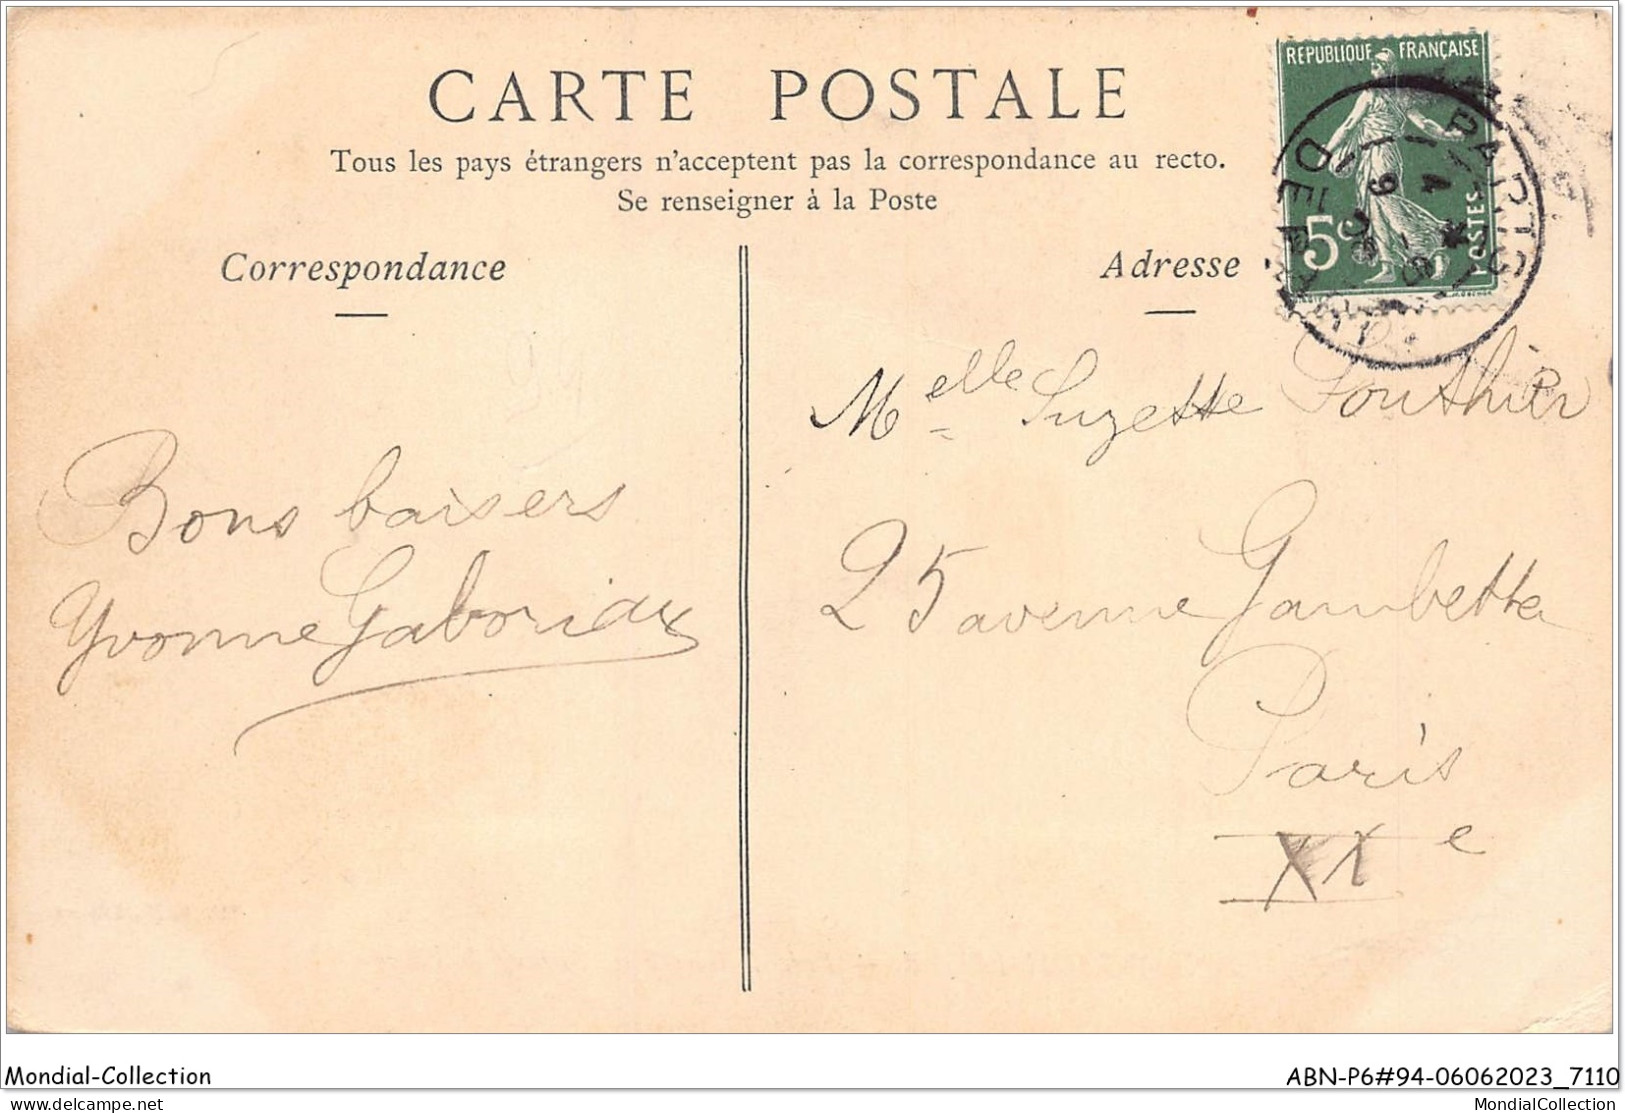 CARTE POSTALE
Tous les pays étrangers n'acceptent pas la correspondance au recto.
Se renseigner à la Poste
Correspondance
Adresse
REPUBLIQUE FRANÇAISE
5c
POSTES
Bons baisers
Yvonne Gaboriau
Melle Suzette Gouthier
25 avenue Gambetta
Paris
XXe
Mondial-Collection
ABN-P6#94-06062023_7110
delcampe.net
MondialCollection